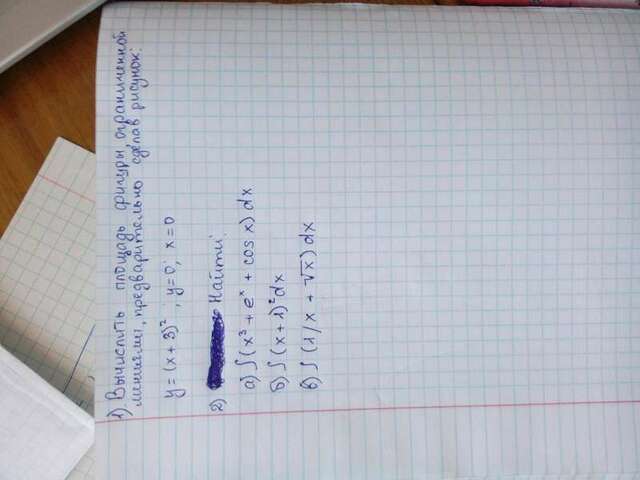 1) Вычислить площадь фигуры, ограниченной
линиями, предварительно сделав рисунок:
y = (x + 3)² ; y=0; x=0
2) Найти:
а) ∫(x³ + eˣ + cos x) dx
б) ∫(x+1)² dx
в) ∫(1/x + √x) dx